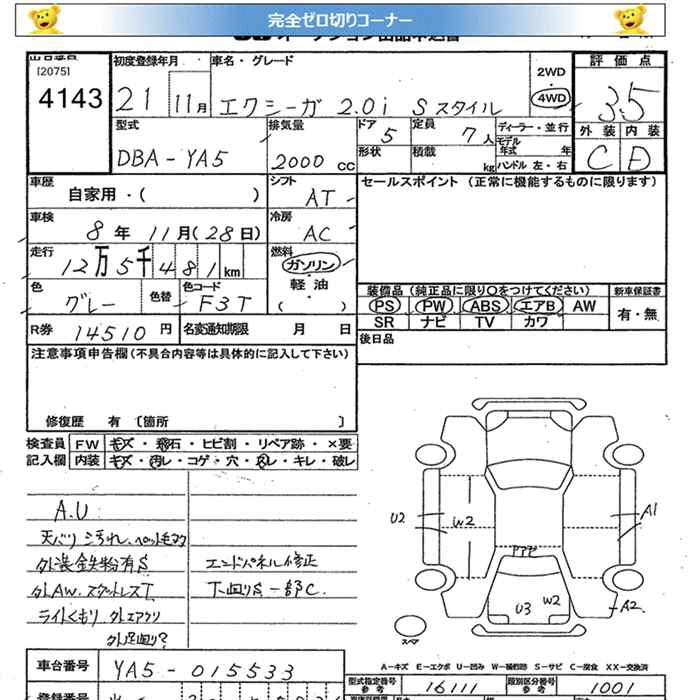 完全ゼロ切りコーナー
[2075]
4143
初度登録年月
21 11月
車名・グレード
エクシーガ 2.0i Sスタイル
2WD
4WD
評価点
3.5
外装 内装
C D
型式
DBA-YA5
排気量
2000 cc
ドア 5
定員 7人
ディーラー・並行
モデル年式 年
形状
積載 kg
ハンドル 左・右
車歴
自家用・( )
シフト
AT
セールスポイント (正常に機能するものに限ります)
車検
8年 11月(28日)
冷房
AC
走行
12万5千481km
燃料
ガソリン
軽油
( )
色
グレー
色替
色コード
F3T
装備品 (純正品に限り○をつけてください)
新車保証書
PS PW ABS エアB AW
SR ナビ TV カワ
有・無
R券 14510円
名変通知期限 月 日
後日品
注意事項申告欄(不具合内容等は具体的に記入して下さい)
修復歴 有 〔箇所 〕
検査員記入欄
FW キズ・飛石・ヒビ割・リペア跡・×要
内装 キズ・汚レ・コゲ・穴・スレ・キレ・破レ
A.U
天バリ シミ汚れ、ペット毛
外装鉄粉有S
エンドパネル修正
外AW、スタッドレスT
下回りS 一部C.
ライトくもり 外エアクリ
外足回り?
U2
W2
A1
U3
W2
A2
スペア
A-キズ E-エクボ U-凹み W-補修跡 S-サビ C-腐食 XX-交換済
車台番号
YA5-015533
型式指定番号 参考
16111
類別区分番号 参考
1001
登録番号